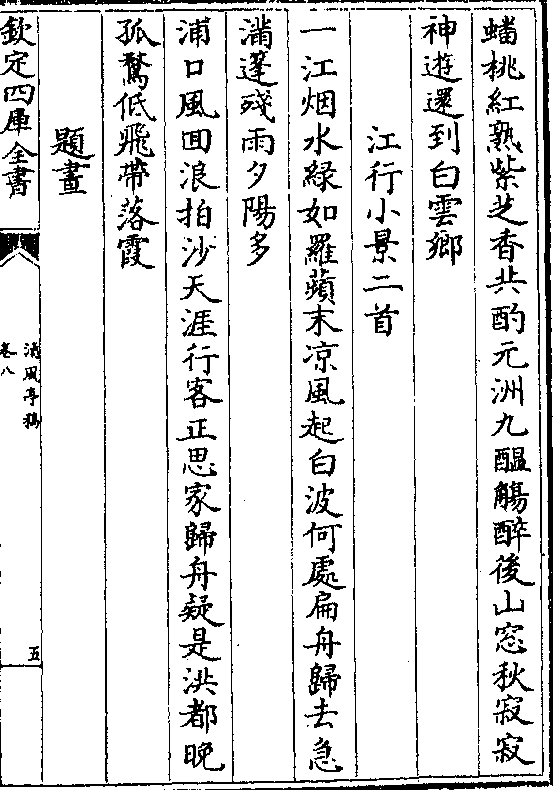 蟠桃紅熟紫芝香共酌元洲九醞觴醉後山窓秋寂寂
神遊還到白雲鄉
江行小景二首
一江烟水綠如羅蘋末凉風起白波何處扁舟歸去急
滿篷殘雨夕陽多
浦口風回浪拍沙天涯行客正思家歸舟疑是洪都晚
孤鶩低飛帶落霞
題畫
欽定四庫全書
清風亭稿
卷八
五